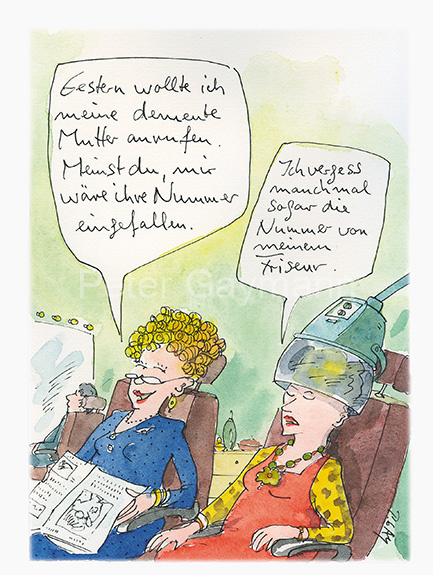 Gestern wollte ich
meine demente
Mutter anrufen.
Meinst du, mir
wäre ihre Nummer
eingefallen.
Ich vergess
manchmal
sogar die
Nummer von
meinem
Friseur.
Peter Gaymann